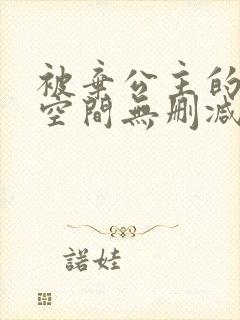 被棄公主的
空間無刪減
諾娃